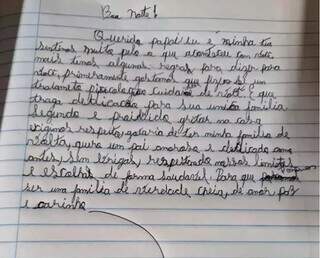 Boa Noite!
Querido papai eu e minha tia
sentimos muito pelo o que aconteceu com você
mais temos algumas regras para dizer para
você, primeiramente gostamos que fizesse um
tratamento psicologico cuidar de você e que
traga dedicação para sua unica familia
Segundo e proibido gritar na casa
exigimos respeito, gotaria de ter minha familia de
volta, quero um pai amoroso e dedicado como
antes, sem brigas, respeitando nossos limites
e escolhas de forma saudavel. Para que possamos
ser uma familia de verdade cheia de amor paz
e carinho